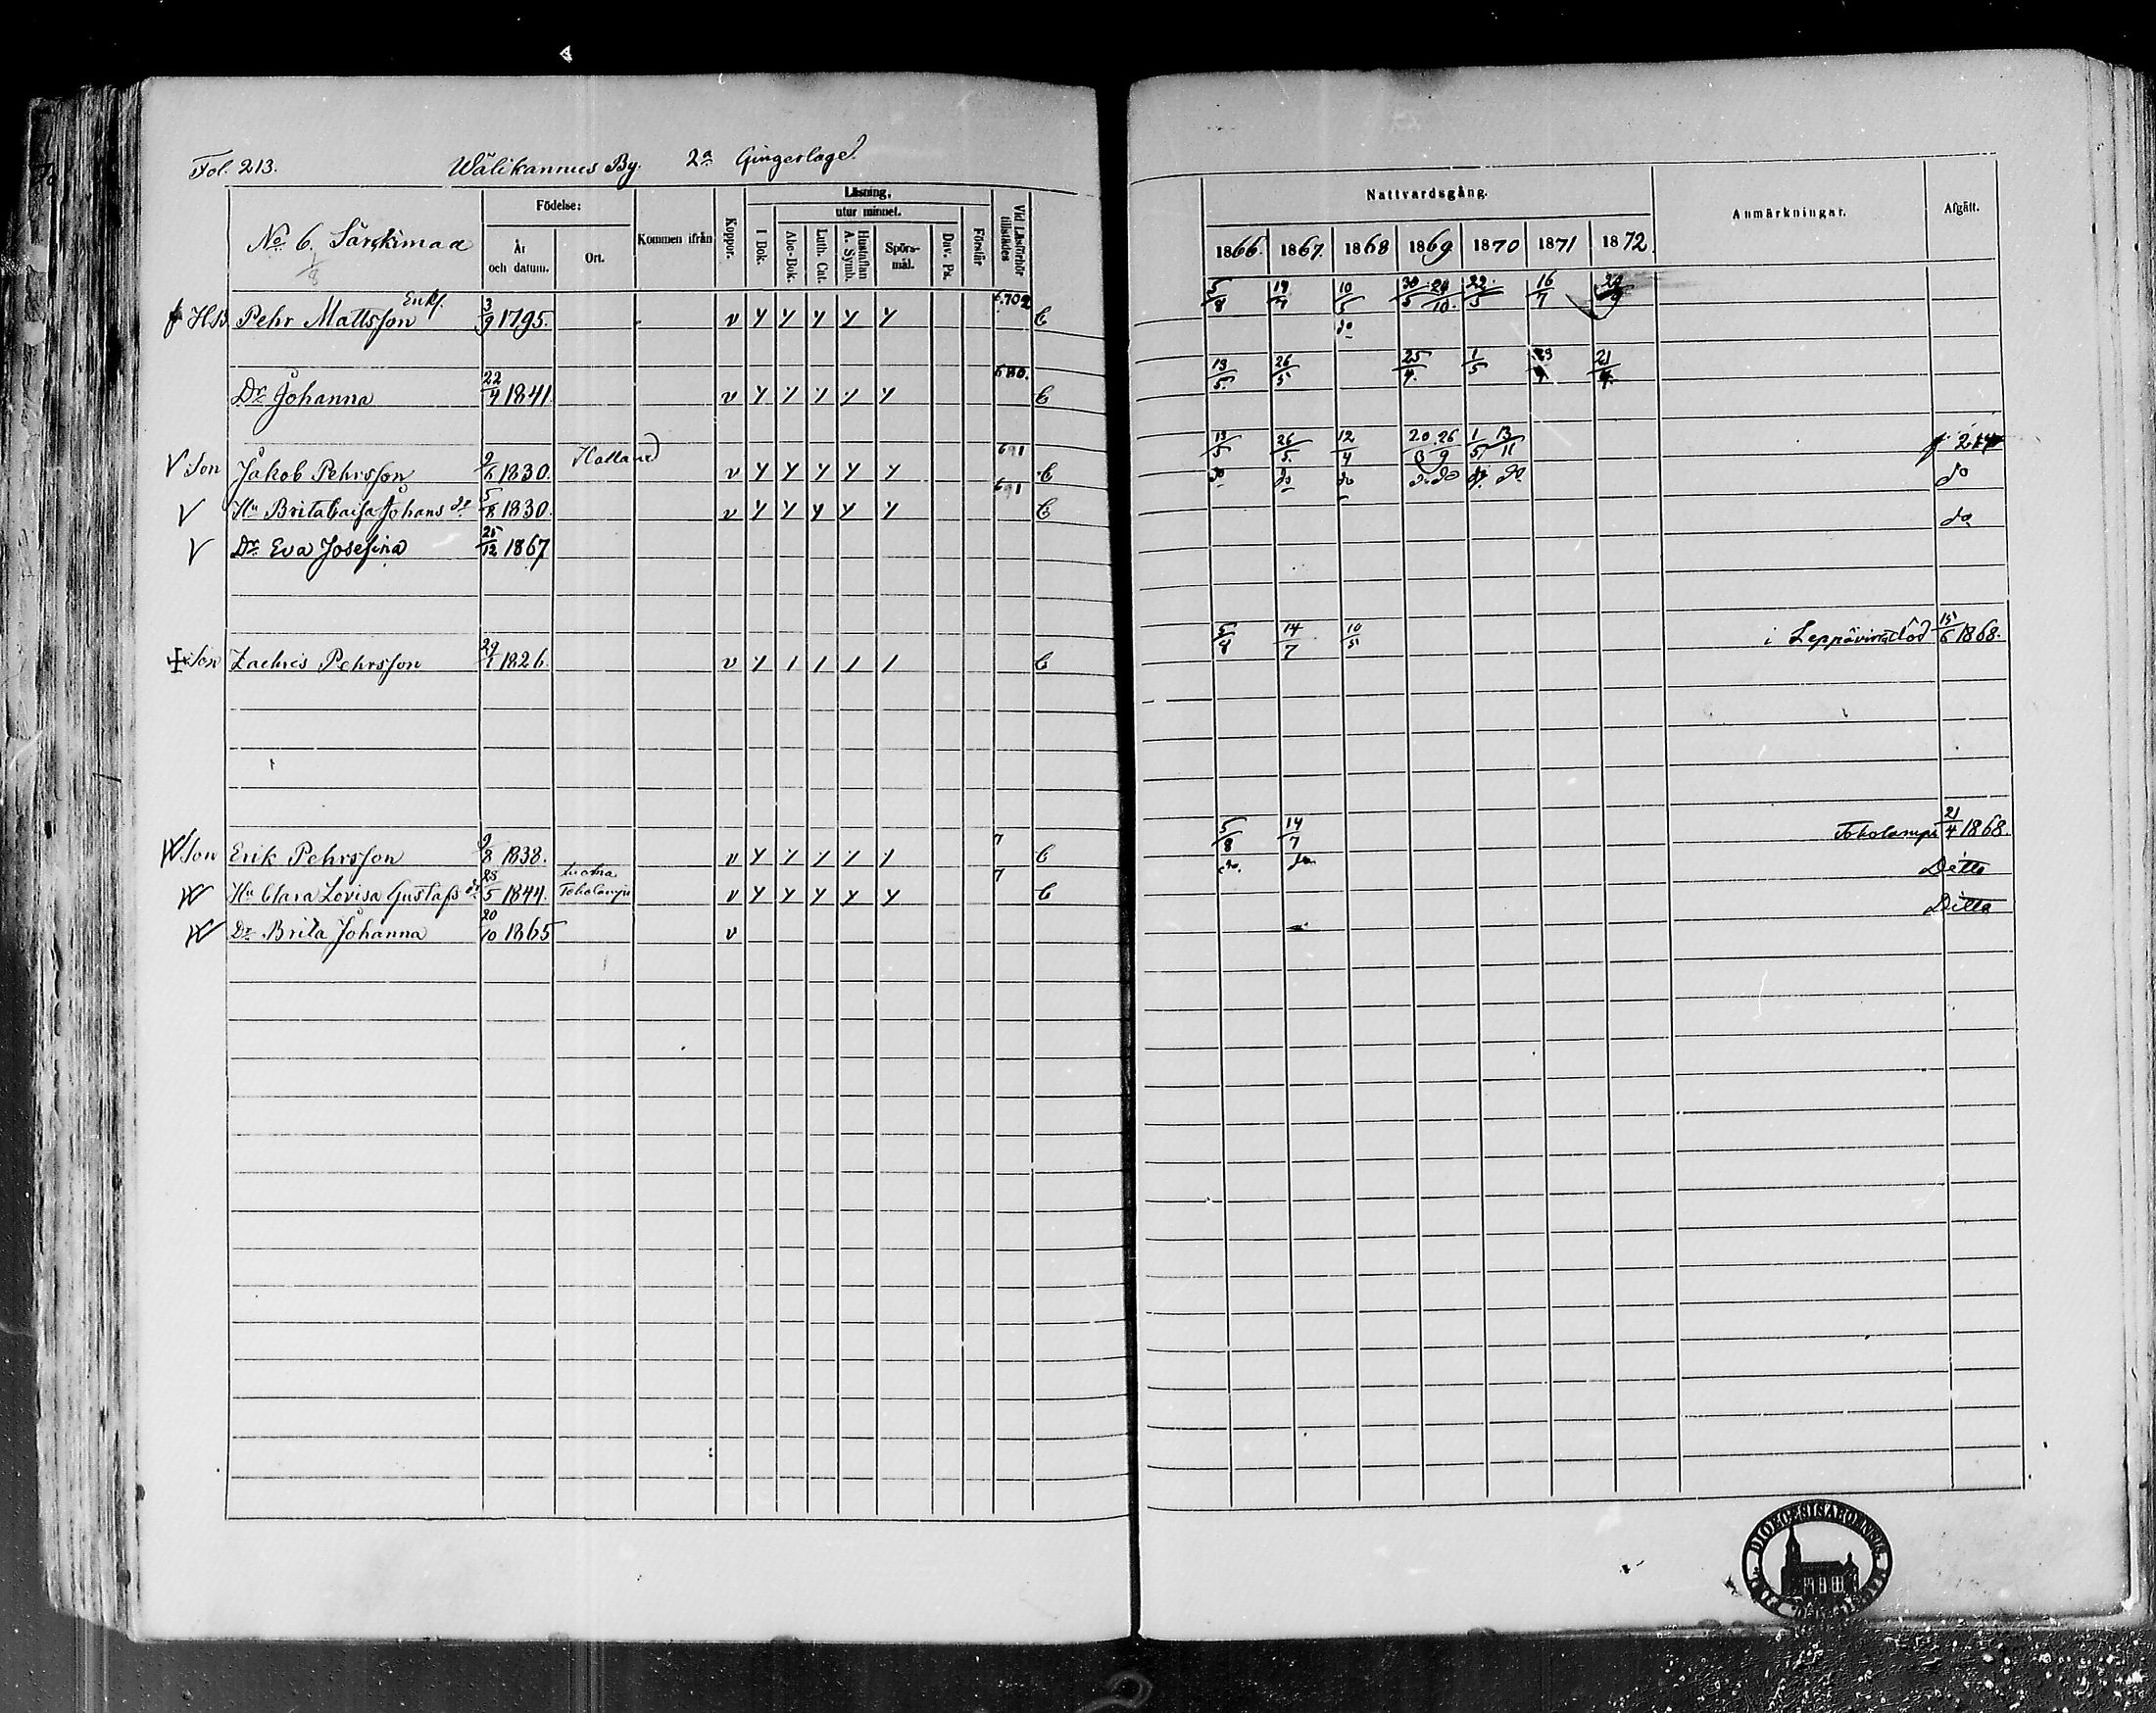 Fol. 213. Wälikannus By. 2a Gingerlaget
No 6. Särkimaa
1/8
Födelse: År och datum. Ort. Kommen ifrån Koppor. Läsning, I Bok. utur minnet. Abc-Bok. Luth. Cat. Hustaflan A. Symb. Spörs-mål. Dav. Ps. Förstår Vid Läsförhör tillstädes
Nattvardsgång. 1866. 1867. 1868 1869 1870 1871 1872. Anmärkningar. Afgått.
Enkl.
Pehr Mattsson 3/9 1795. v y y y y y 6.702 C 5/8 10/5 30/5 22/5 16/7
do
Dr Johanna 22/4 1841 v y / / / y C 13/5 26/5 25/4 1/5 21/4
V Son Jakob Pehrsson 2/6 1830. v y y y y y 691 C 13/5 26/5 12/4 20/3 26/9 1/5 13/11
V Hu Britacaisa Johans dr 5/8 1830. v y y y y y 691 C do do do do do do do do
V Dr Eva Josefina 25/12 1867 do
Son Zachris Pehrsson 29/1 1826. v y / / / / C 5/8 14/7 10/5 i Leppävirta död 15/6 1868.
Son Erik Pehrsson 9/8 1838. v y / / / / 7 C 5/8 14/7 Toholampi 21/4 1868.
Hu Clara Lovisa Gustafs dr 28/5 1844. Toholampi v y y y y y 7 C do. do Ditto
Dr Brita Johanna 20/10 1865 v Ditto
DIOECESIS ABOENSIS